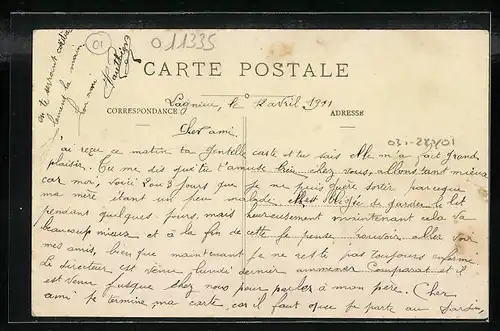 en te serrant
la main
ton ami
01
011335
CARTE POSTALE
CORRESPONDANCE
ADRESSE
Lagnieu, le 12 avril 1911
03-28701
Cher ami
J'ai reçu ce matin ta gentille carte et tu sais elle m'a fait grand
plaisir. Tu me dis que tu t'amuse bien chez vous, allons tant mieux
car moi, voici 2 ou 3 jours que je ne puis guère sortir parceque
ma mère étant un peu malade, obligée de garder le lit
pendant quelques jours, mais heureusement maintenant cela va
beaucoup mieux et à la fin de cette je pense pouvoir aller voir
mes amis, bien que maintenant je ne reste pas toujours enfermé
le directeur est venu lundi dernier ammener Comparat et il
est venu jusque chez nous pour parler à mon père. Cher
ami je termine ma carte car il faut que je parte au jardin,